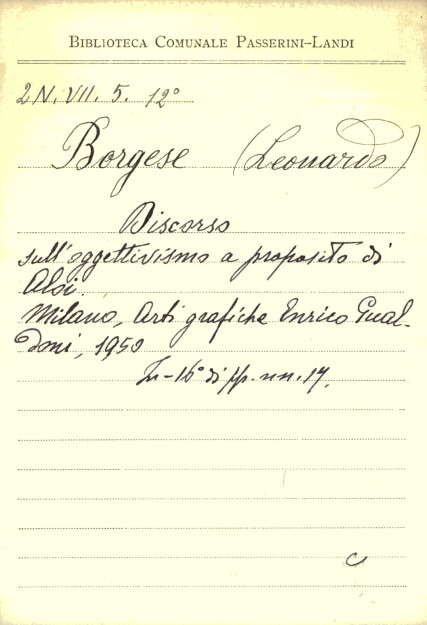 BIBLIOTECA COMUNALE PASSERINI-LANDI
2N. VII. 5. 12°
Borgese (Leonardo)
Discorso
sull'oggettivismo a proposito di
Aloi.
Milano, Arti grafiche Enrico Gual-
doni, 1950
In-16° di pp. nn. 17.
C